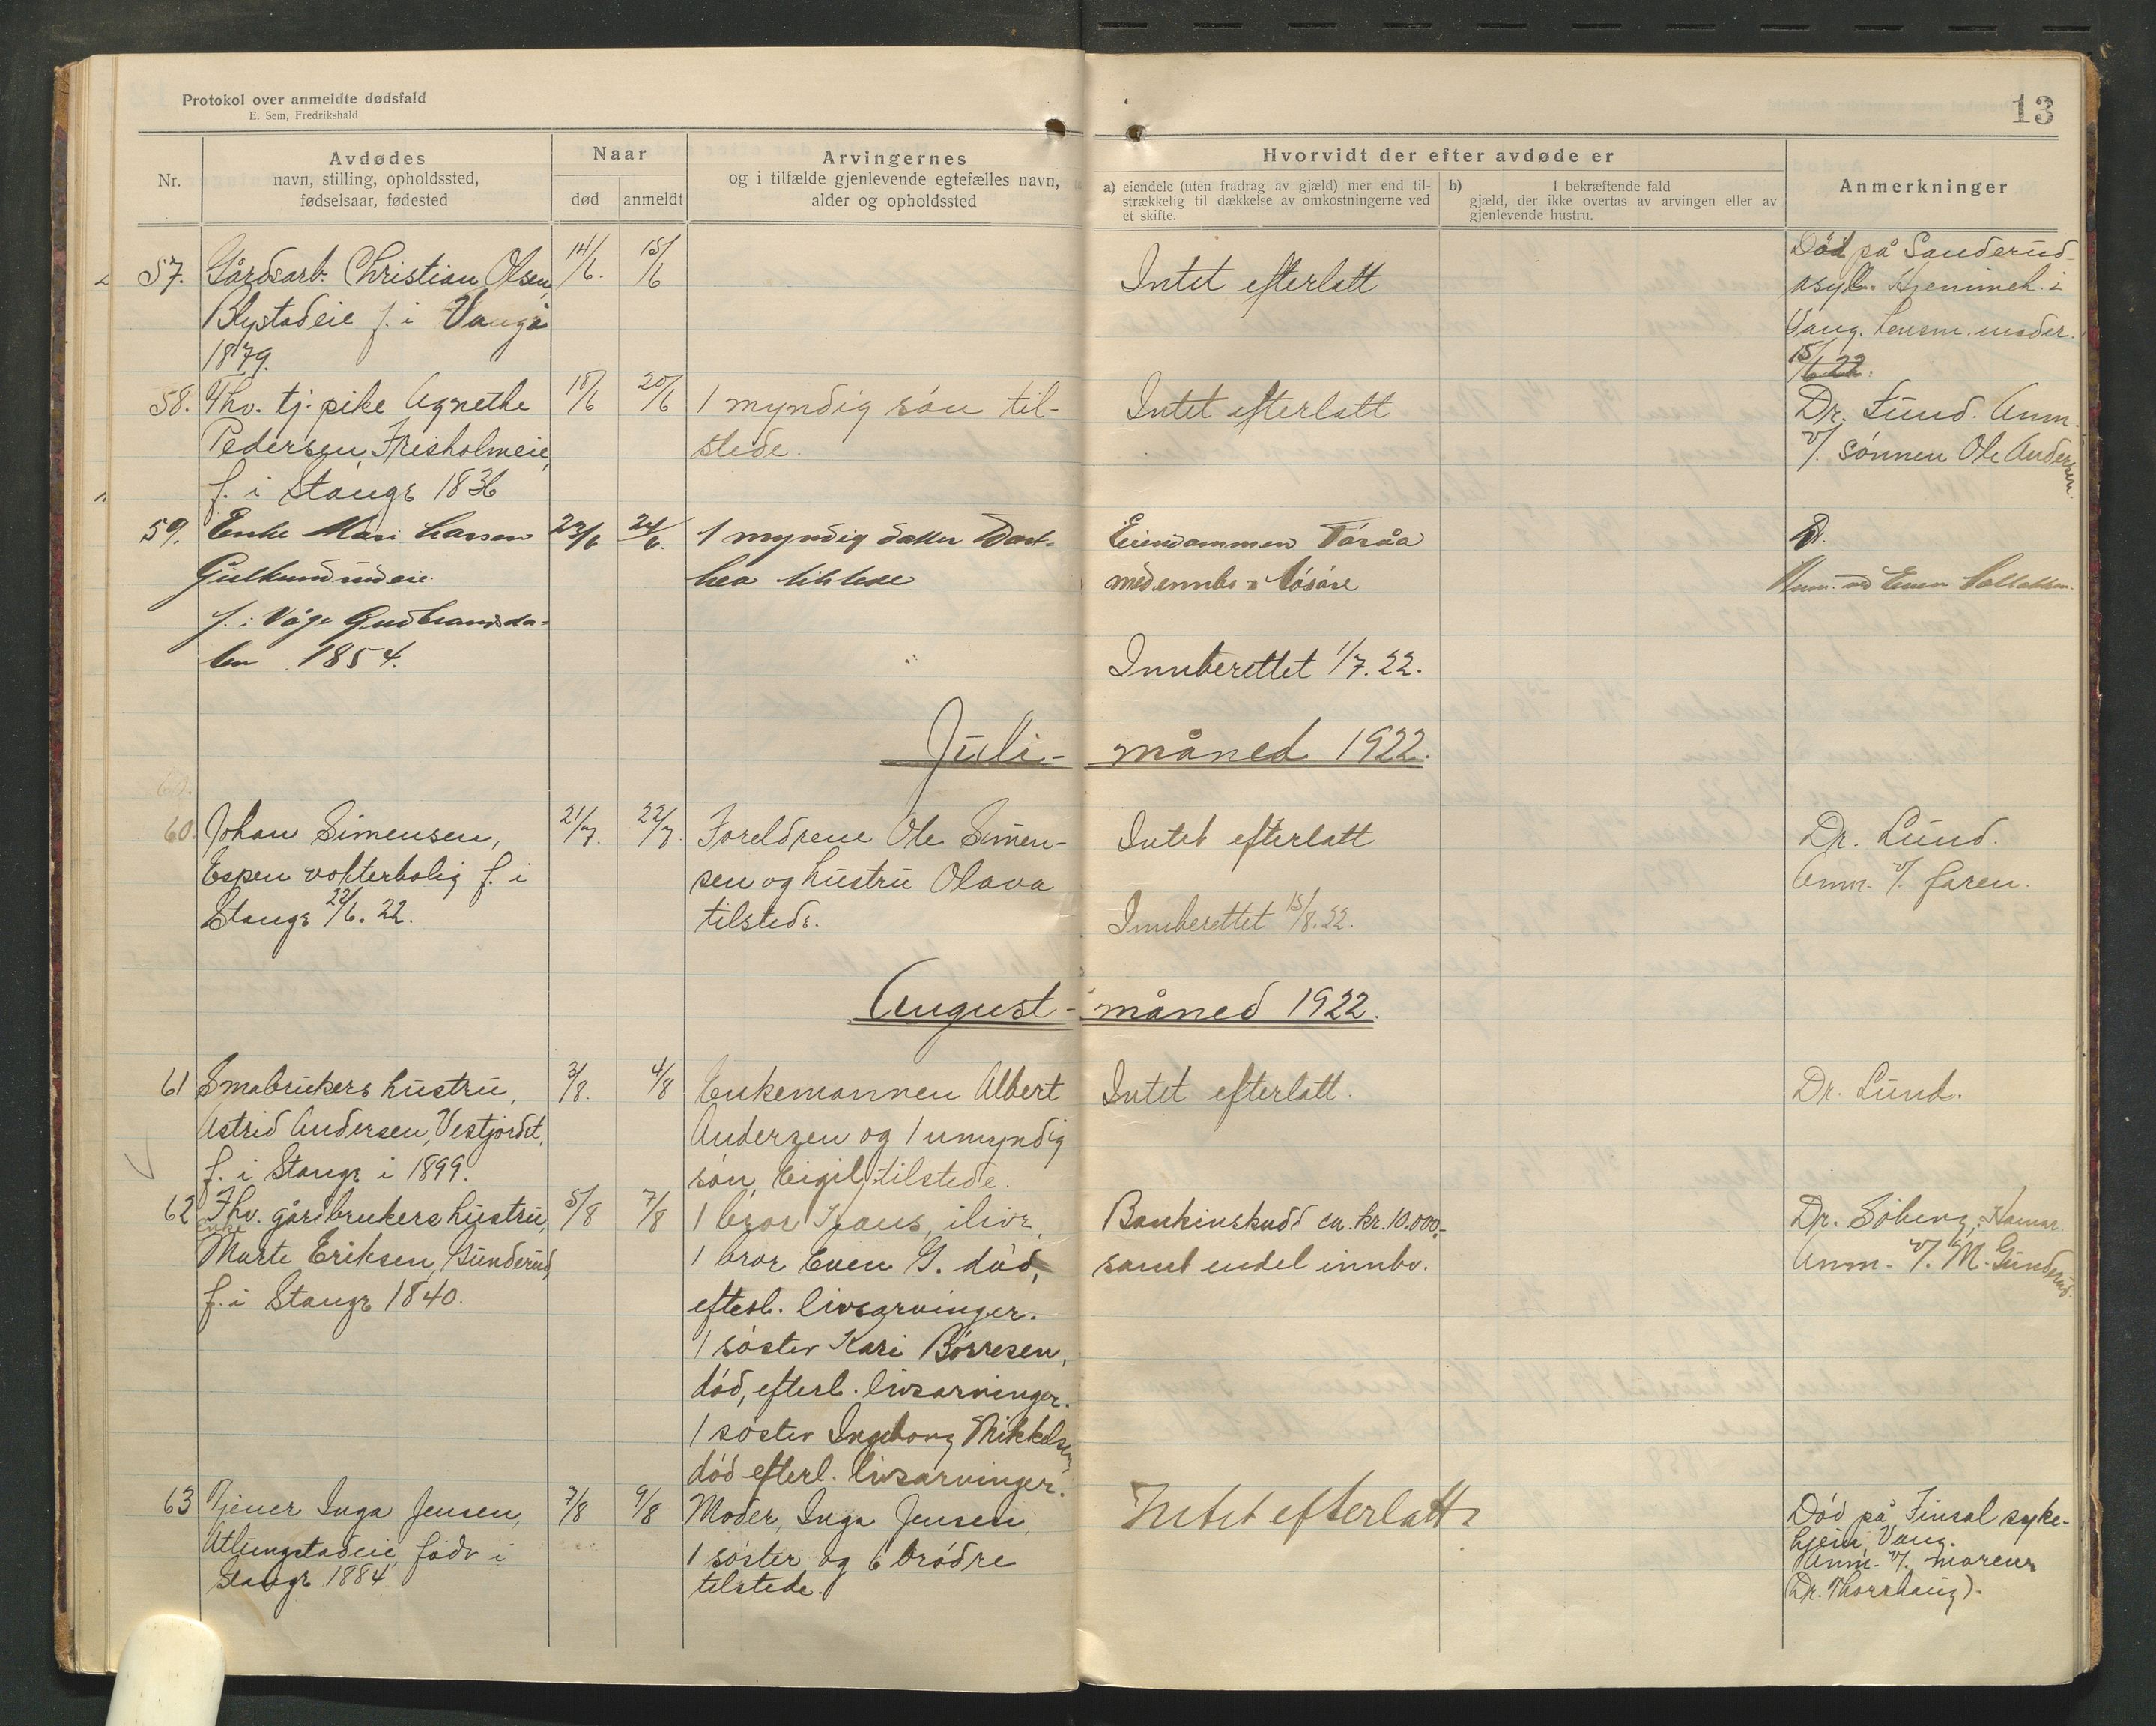 Protokol over anmeldte dødsfald
E. Sem, Fredrikshald
13
Nr.
Avdødes
navn, stilling, opholdssted,
fødselsaar, fødested
Naar
død
anmeldt
Arvingernes
og i tilfælde gjenlevende egtefælles navn,
alder og opholdssted
Hvorvidt der efter avdøde er
a) eiendele (uten fradrag av gjæld) mer end til-
strækkelig til dækkelse av omkostningerne ved
et skifte.
b) I bekræftende fald
gjæld, der ikke overtas av arvingen eller av
gjenlevende hustru.
Anmerkninger
57.
Gårdsarb. Christian Olsen,
Blystadeie f. i Vang i
1879.
14/6.
15/6
Intet efterlatt
Død på Sanderud
asyl. Hjemmeh. i
Vang. Lensm.
15/6 22.
58.
Fhv. tj. pike Agnethe
Pedersen, Frisholmeie,
f. i Stange 1836
18/6
20/6
1 myndig søn til-
stede.
Intet efterlatt
Dr. Lund. Anm.
v/. sønnen Ole Andersen.
59.
Enke Mari Larsen
f. i Våge Gudbrandsda-
len 1854.
23/6
24/6.
1 myndig datter Dort-
hea tilstede
Eiendommen
med innbo & løsøre
Dr.
Anm. ved
Innberettet 1/7. 22.
Juli- måned 1922.
60.
Johan Simensen,
Espen vokterbolig f. i
Stange 22/6. 22.
21/7.
22/7.
Foreldrene Ole Simen-
sen og hustru Olava
tilstede.
Intet efterlatt
Dr. Lund.
Anm. v/. faren.
Innberettet 15/8. 22.
August- måned 1922.
61
Småbrukers hustru,
Astrid Andersen, Vestjordet,
f. i Stange i 1899.
3/8.
4/8
Enkemannen Albert
Andersen og 1 umyndig
søn, Eigil, tilstede.
Intet efterlatt.
Dr. Lund.
62
Fhv. gårdbrukers hustru,
Enke
Marte Eriksen, Gunderud,
f. i Stange 1840.
5/8
7/8
1 bror Hans, ilive,
1 bror Even G. død,
efterl. livsarvinger.
1 søster Kari Børresen,
død, efterl. livsarvinger.
1 søster Ingeborg Mikkelsen,
død efterl. livsarvinger.
Bankinskudd ca. kr. 10.000,-
samt endel innbo.
Dr. Soberg, Hamar.
Anm. v/. M. Gunderud.
63
Tjener Inga Jensen,
Atlungstadeie, født i
Stange 1884
7/8
9/8
Moder, Inga Jensen,
1 søster og 6 brødre
tilstede.
Intet efterlatt
Død på Finsal syke-
hjem, Vang.
Anm. v/. moren
Dr. Thorshaug).